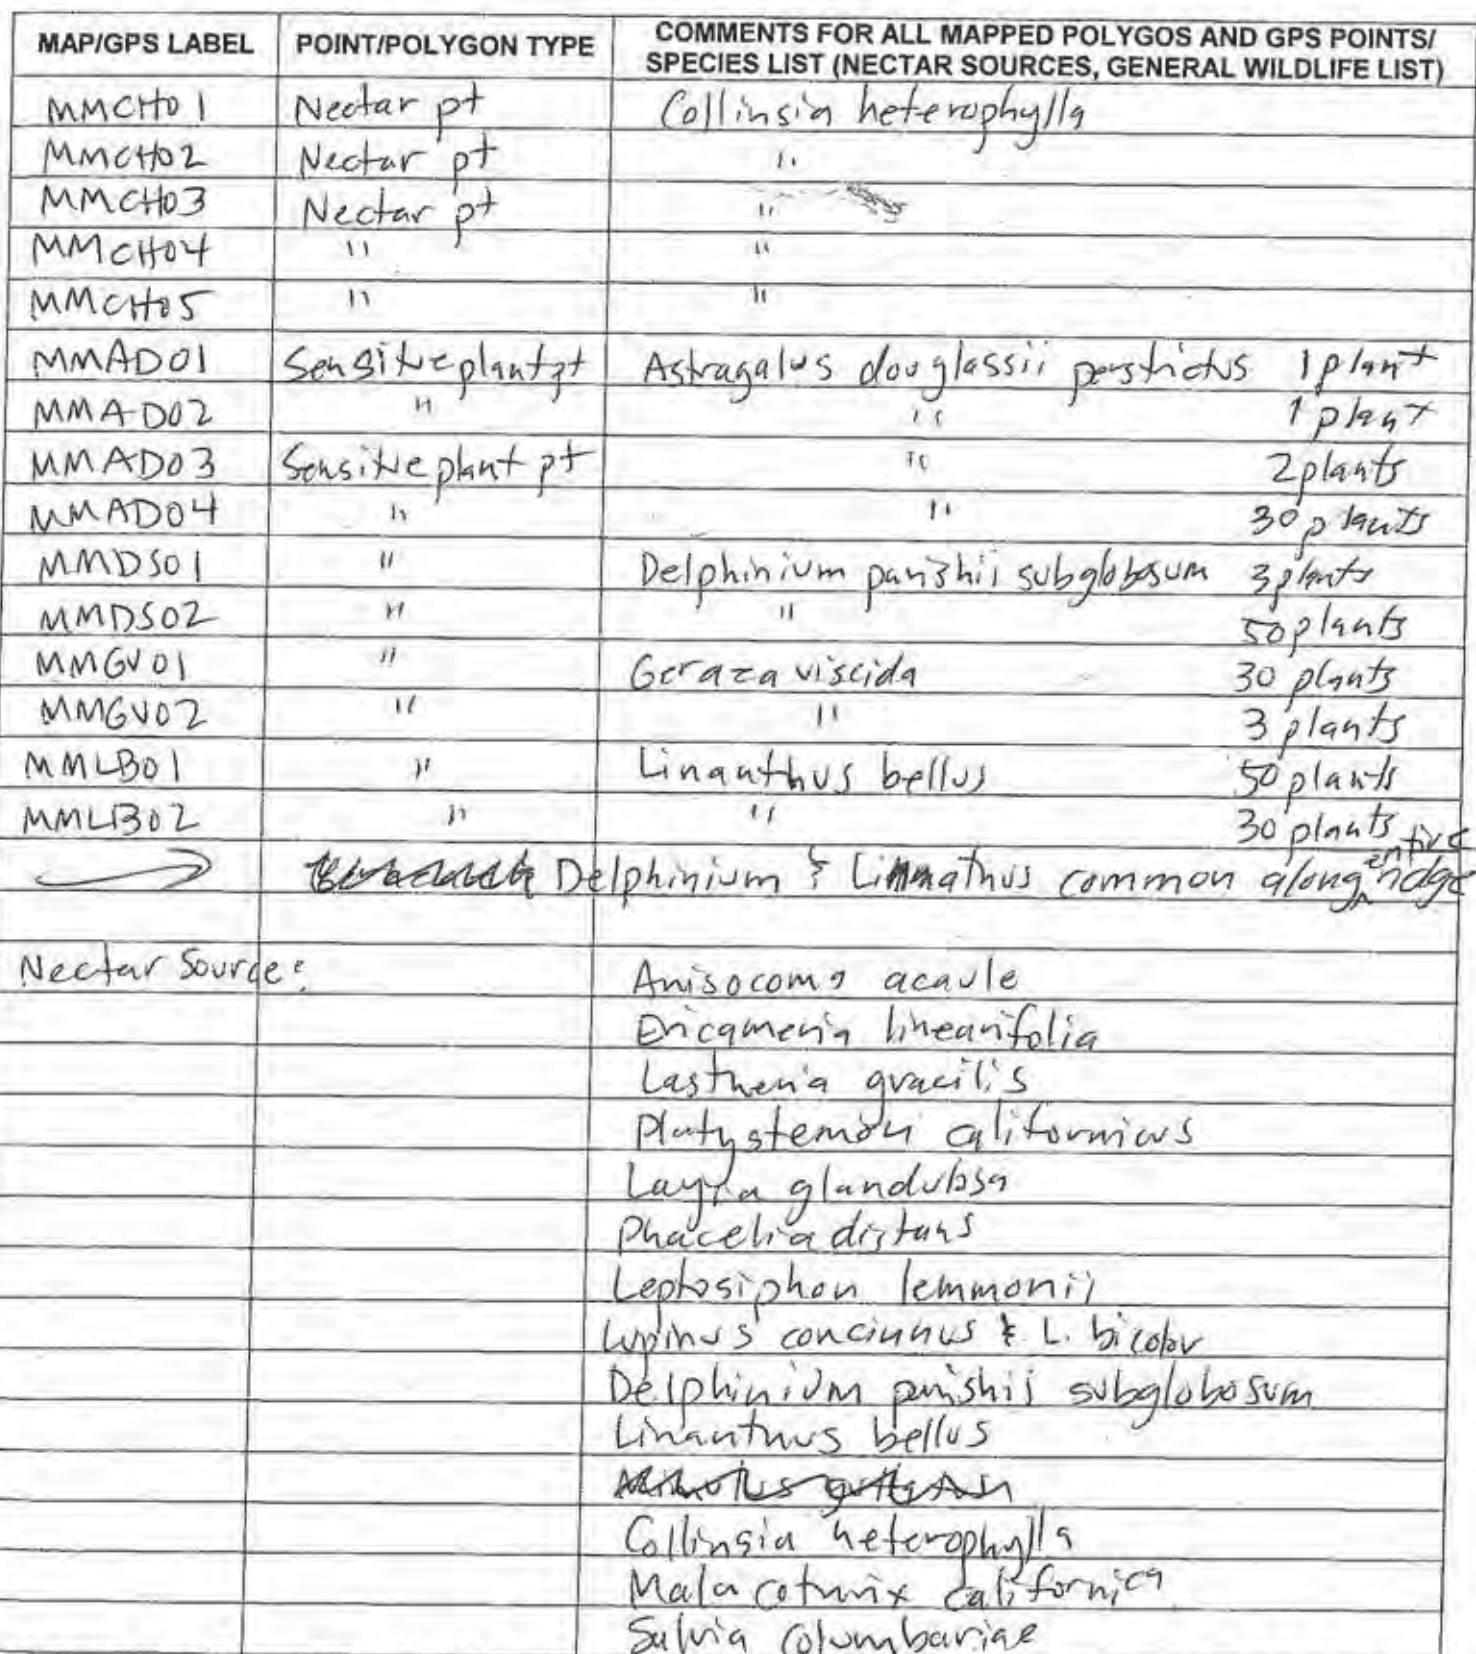 MAP/GPS LABEL POINT/POLYGON TYPE COMMENTS FOR ALL MAPPED POLYGOS AND GPS POINTS/
SPECIES LIST (NECTAR SOURCES, GENERAL WILDLIFE LIST)
MMCH01 Nectar pt Collinsia heterophylla
MMCH02 Nectar pt "
MMCH03 Nectar pt "
MMCH04 " "
MMCH05 " "
MMAD01 Sensitive plant pt Astragalus douglassii perstrictus 1 plant
MMAD02 " " 1 plant
MMAD03 Sensitive plant pt " 2 plants
MMAD04 " " 30 plants
MMDS01 " Delphinium parishii subglobosum 3 plants
MMDS02 " " 50 plants
MMGV01 " Geraea viscida 30 plants
MMGV02 " " 3 plants
MMLB01 " Linanthus bellus 50 plants
MMLB02 " " 30 plants
→ Delphinium & Linnathus common along entire ridge
Nectar Source: Anisocoma acaule
Ericameria linearifolia
Lasthenia gracilis
Platystemon californicus
Layia glandulosa
Phacelia distans
Leptosiphon lemmonii
Lupinus concinnus & L. bicolor
Delphinium parishii subglobosum
Linanthus bellus
Collinsia heterophylla
Malacothrix californica
Salvia columbariae